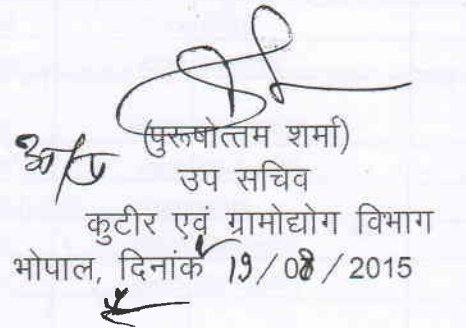 (पुरूषोत्तम शर्मा)
उप सचिव
कुटीर एवं ग्रामोद्योग विभाग
भोपाल, दिनांक 19/08/2015